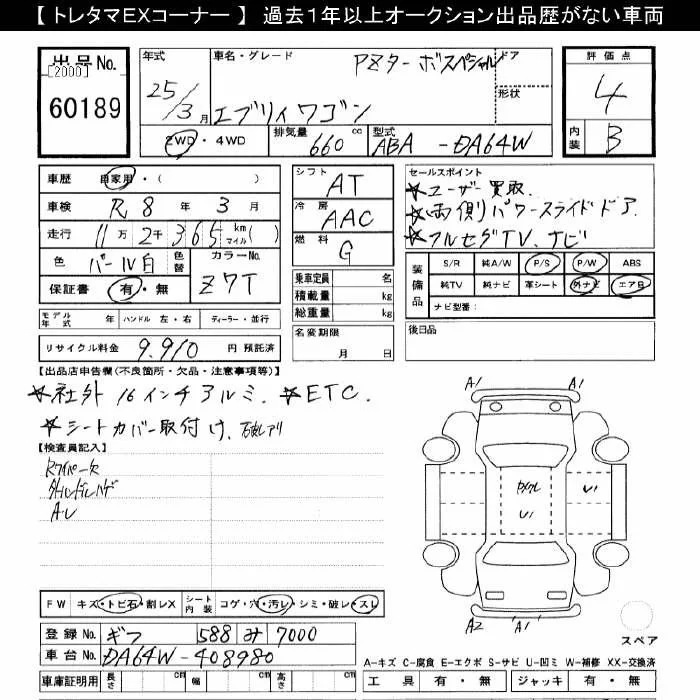 【 トレタマEXコーナー 】 過去1年以上オークション出品歴がない車両
出品No. 年式 車名・グレード PZターボスペシャル ドア 評価点
[2000]
60189 25/3月 エブリィワゴン 形状 4
2WD・4WD 排気量 660cc 型式 ABA -DA64W 内装 B
車歴 自家用・( ) シフト AT セールスポイント
車検 R8年3月 冷房 AAC ★ユーザー買取.
走行 11万2千365 km(マイル) 燃料 G ★両側パワースライドドア.
色 パール白 色替 カラーNo. Z7T ★フルセグTV、ナビ
保証書 有・無 乗車定員 名 装備品 S/R 純A/W P/S P/W ABS
積載量 kg 純TV 純ナビ 革シート 外ナビ エアB
総重量 kg ナビ型番:
モデル年式 年 ハンドル 左・右 ディーラー・並行 名変期限 月 日 後日品
リサイクル料金 9,910 円 預託済
【出品店申告欄(不良箇所・欠品・注意事項等)】
★社外16インチアルミ. ★ETC.
★シートカバー取付け.
【検査員記入】
A1 A1
U1 U1
A・U
A2 A1
スペア
FW キズ・トビ石・割レX シート内装 コゲ・穴・汚レ・シミ・破レ・スレ
登録No. ギフ 588 み 7000
車台No. DA64W-408980
A-キズ C-腐食 E-エクボ S-サビ U-凹ミ W-補修 XX-交換済
車庫証明用 長さ cm 幅 cm 高さ cm 工具 有・無 ジャッキ 有・無